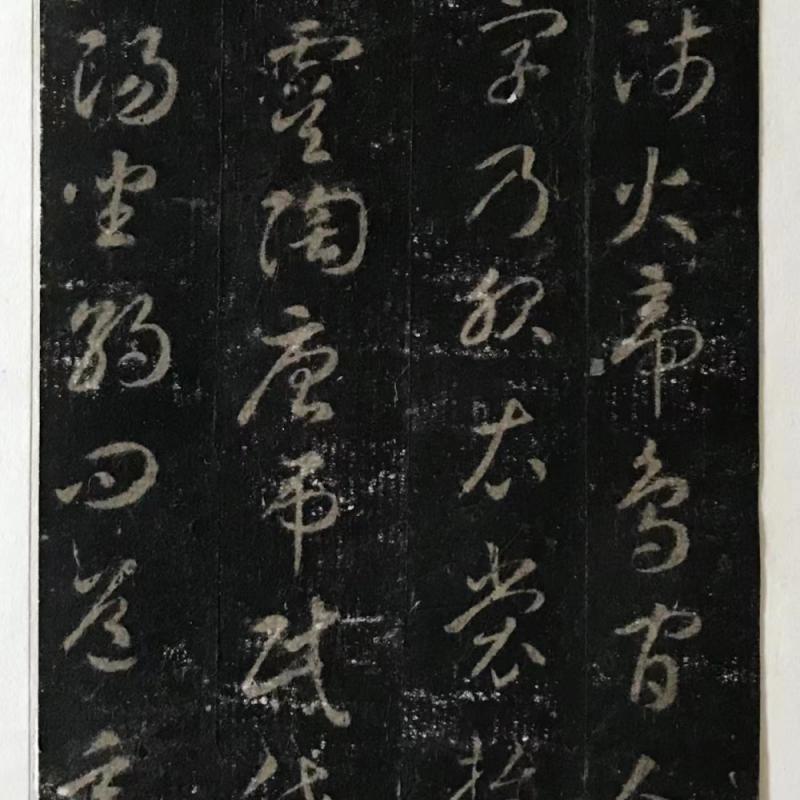 師火帝鳥官人
字乃服衣裳推
虞陶唐弔民伐
湯坐朝問道垂